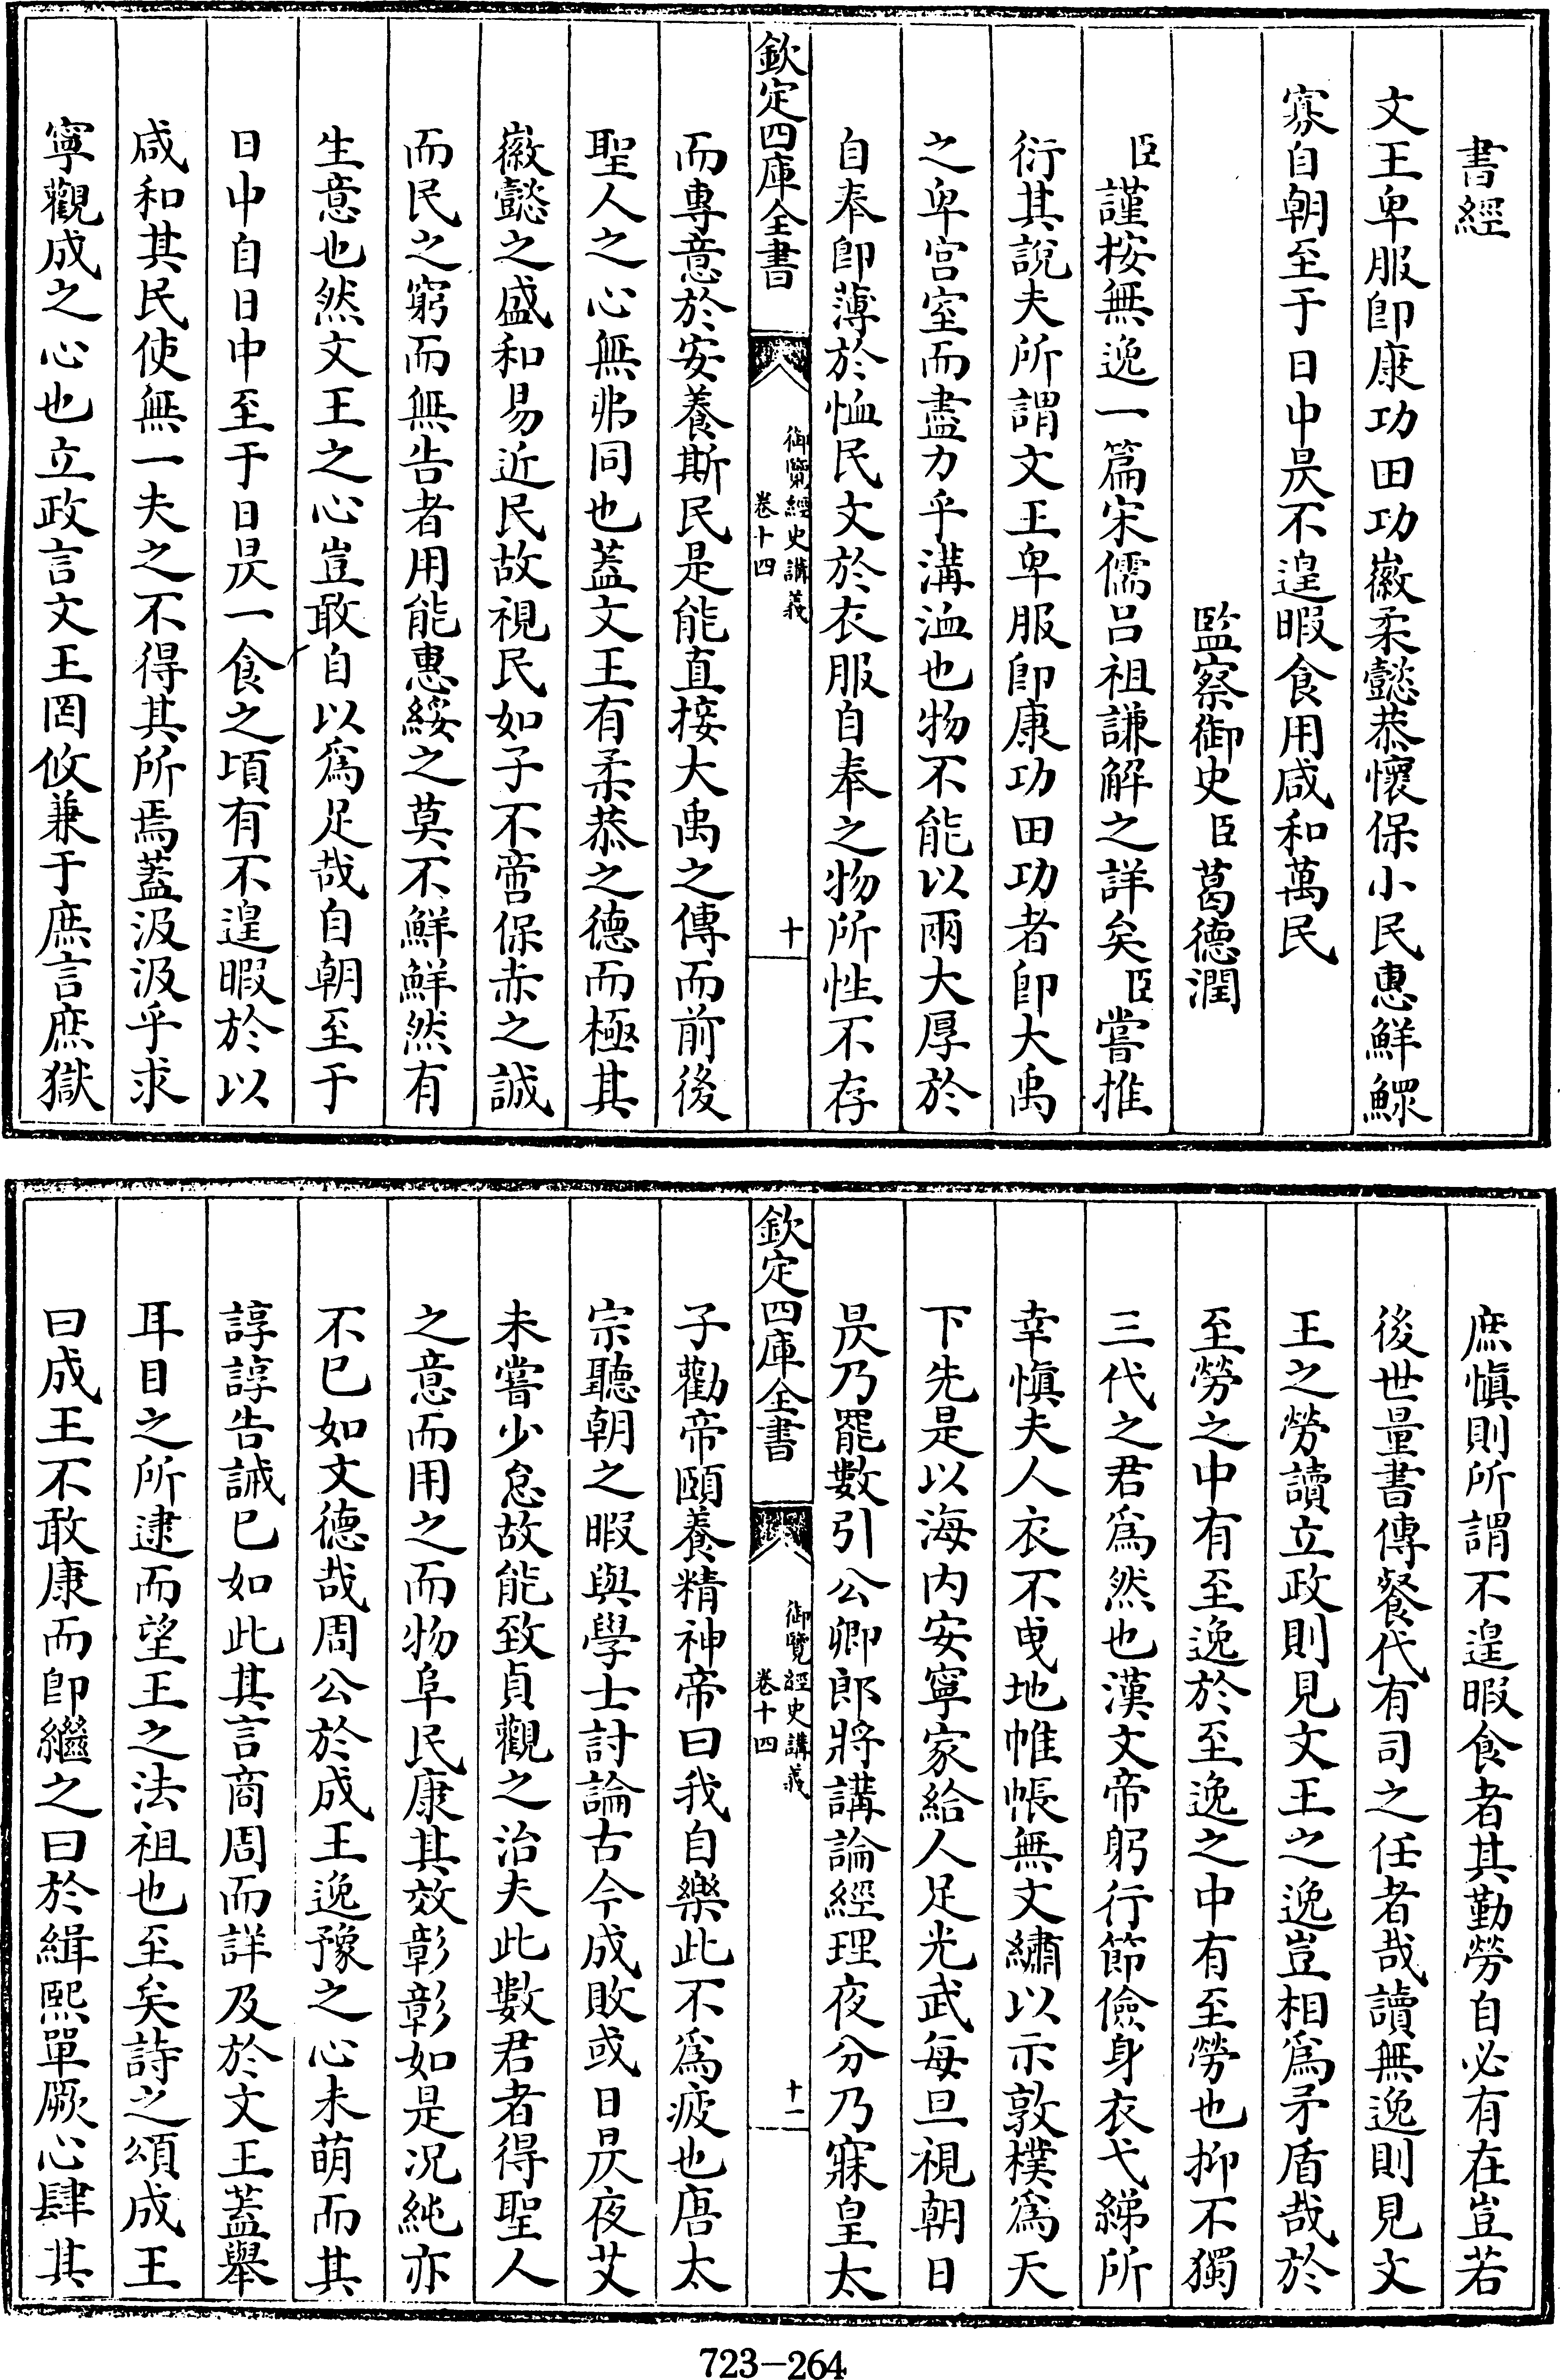 書經
文王卑服卽康功田功徽柔懿恭懷保小民惠鮮鰥
寡自朝至于日中昃不遑暇食用咸和萬民
監察御史臣葛德潤
臣謹按無逸一篇宋儒呂祖謙解之詳矣臣嘗推
衍其說夫所謂文王卑服卽康功田功者卽大禹
之卑宫室而盡力乎溝洫也物不能以兩大厚於
自奉卽薄於恤民文於衣服自奉之物所性不存
欽定四庫全書
御覽經史講義
卷十四
十
而專意於安養斯民是能直接大禹之傳而前後
聖人之心無弗同也蓋文王有柔恭之德而極其
徽懿之盛和易近民故視民如子不啻保赤之誠
而民之窮而無告者用能惠綏之莫不鮮鮮然有
生意也然文王之心豈敢自以爲足哉自朝至于
日中自日中至于日昃一食之頃有不遑暇於以
咸和其民使無一夫之不得其所焉蓋汲汲乎求
寧觀成之心也立政言文王罔攸兼于庶言庶獄
庶愼則所謂不遑暇食者其勤勞自必有在豈若
後世量書傳餐代有司之任者哉讀無逸則見文
王之勞讀立政則見文王之逸豈相爲矛盾哉於
至勞之中有至逸於至逸之中有至勞也抑不獨
三代之君爲然也漢文帝躬行節儉身衣弋綈所
幸愼夫人衣不曳地帷帳無文繡以示敦樸爲天
下先是以海内安寧家給人足光武每旦視朝日
昃乃罷數引公卿郎將講論經理夜分乃寐皇太
欽定四庫全書
御覽經史講義
卷十四
十一
子勸帝頤養精神帝曰我自樂此不爲疲也唐太
宗聽朝之暇與學士討論古今成敗或日昃夜艾
未嘗少怠故能致貞觀之治夫此數君者得聖人
之意而用之而物阜民康其效彰彰如是況純亦
不已如文德哉周公於成王逸豫之心未萌而其
諄諄告誡已如此其言商周而詳及於文王蓋舉
耳目之所逮而望王之法祖也至矣詩之頌成王
曰成王不敢康而卽繼之曰於緝熙單厥心肆其
723-264